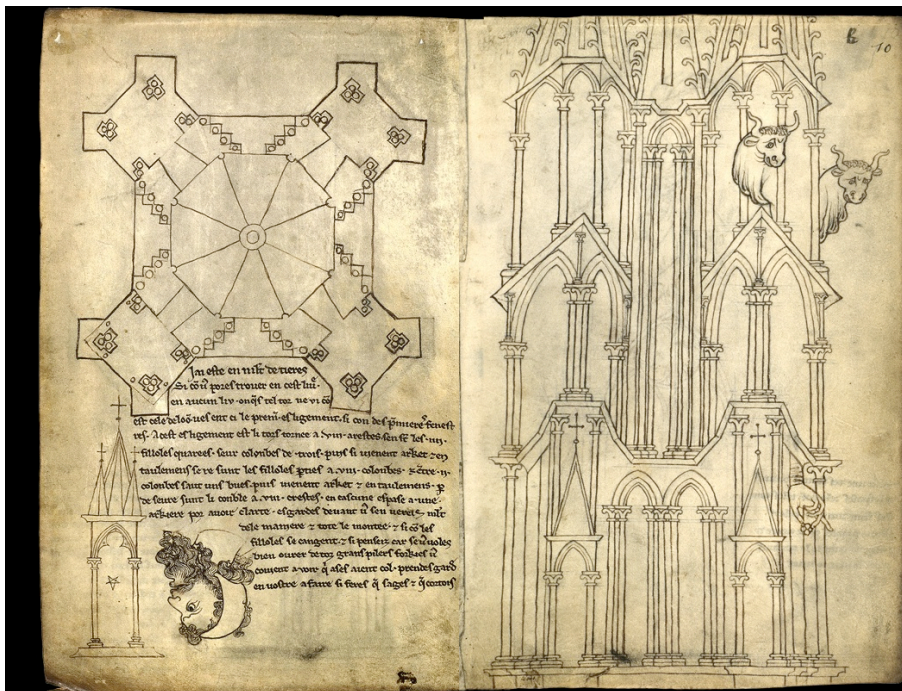 J'ai este en mlt de tieres
Si cō ū pores trover en cest liu
en aucun liu onq̄s tel tor ne vi cō
est cele de loō ves ent ci le premī esligement si con des pmiers fenest
res a cest esligement est li tors tornee a viii arestes sen sē les iiii
filloles quarees seur colonbes de trois puis si vienent arket ⁊ en
taulemens se re sunt les filloles pties a viii colonbes ⁊ ētre ii
colonbes saut uns bues puis vienent arket ⁊ entaulemens p
de seure sunt li conble a viii crestes en cascune espase a une
arkiere por avoir clarte esgardes devant ū sen veres mlt
de le maniere ⁊ tote le montee ⁊ si cō les
filloles se cangent ⁊ si penseiz car se ū voles
bien ovrer de toz grans pilers forkies ū
covient avoir q̄ ases aient col prendes gard
en vostre afaire si feres q̄ sages ⁊ q̄ cortois
10